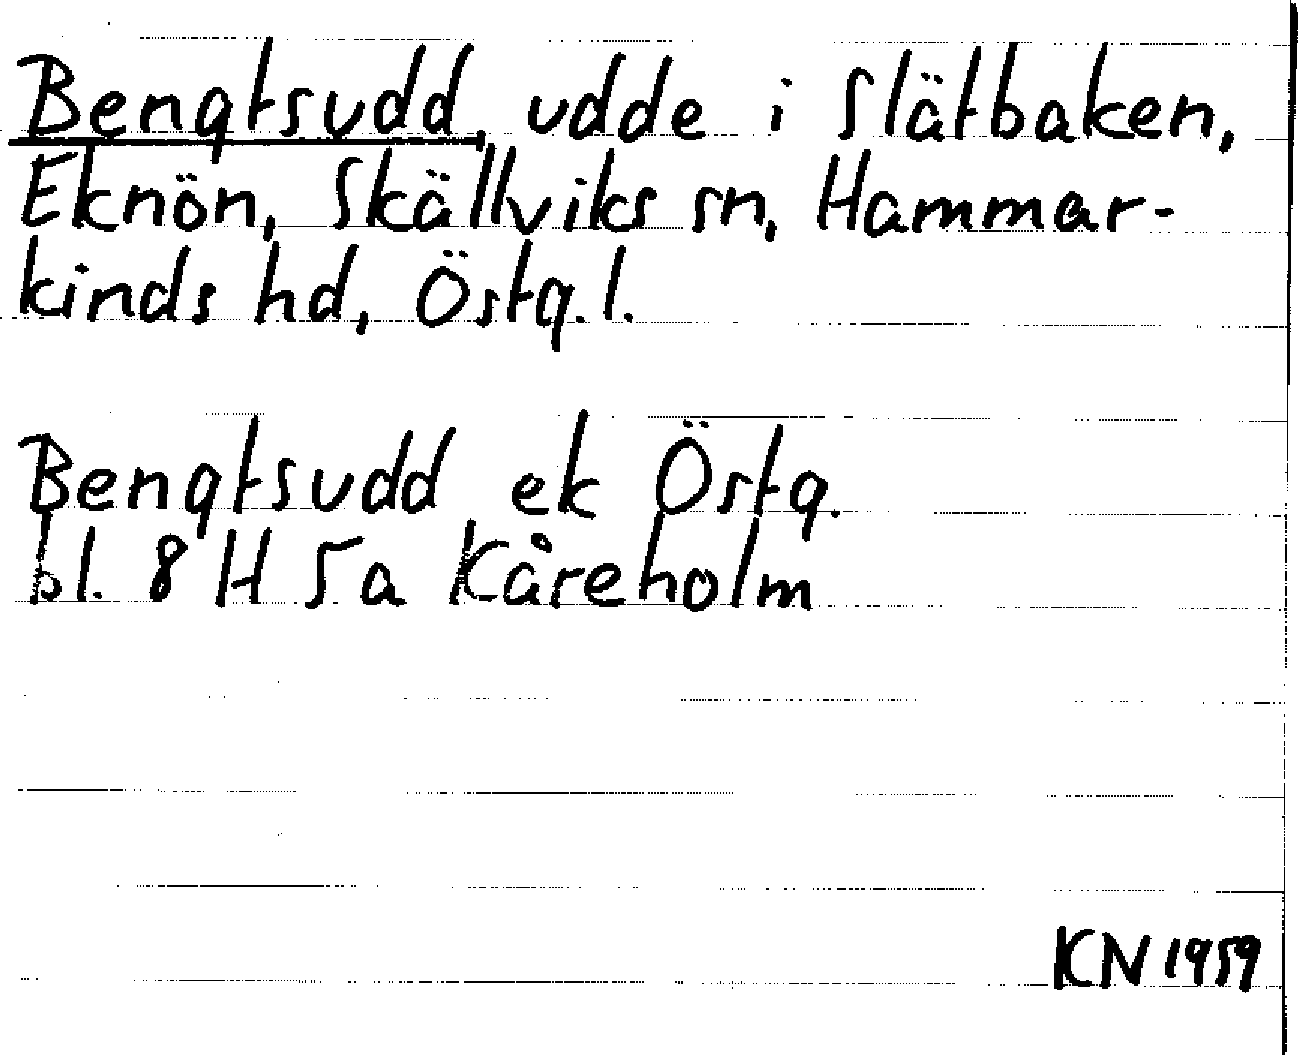 Bengtsudd, udde i Slätbaken,
Eknön, Skällviks sn, Hammar-
kinds hd, Östg. l.
Bengtsudd ek Östg.
bl. 8 H 5a Kåreholm
KN 1959